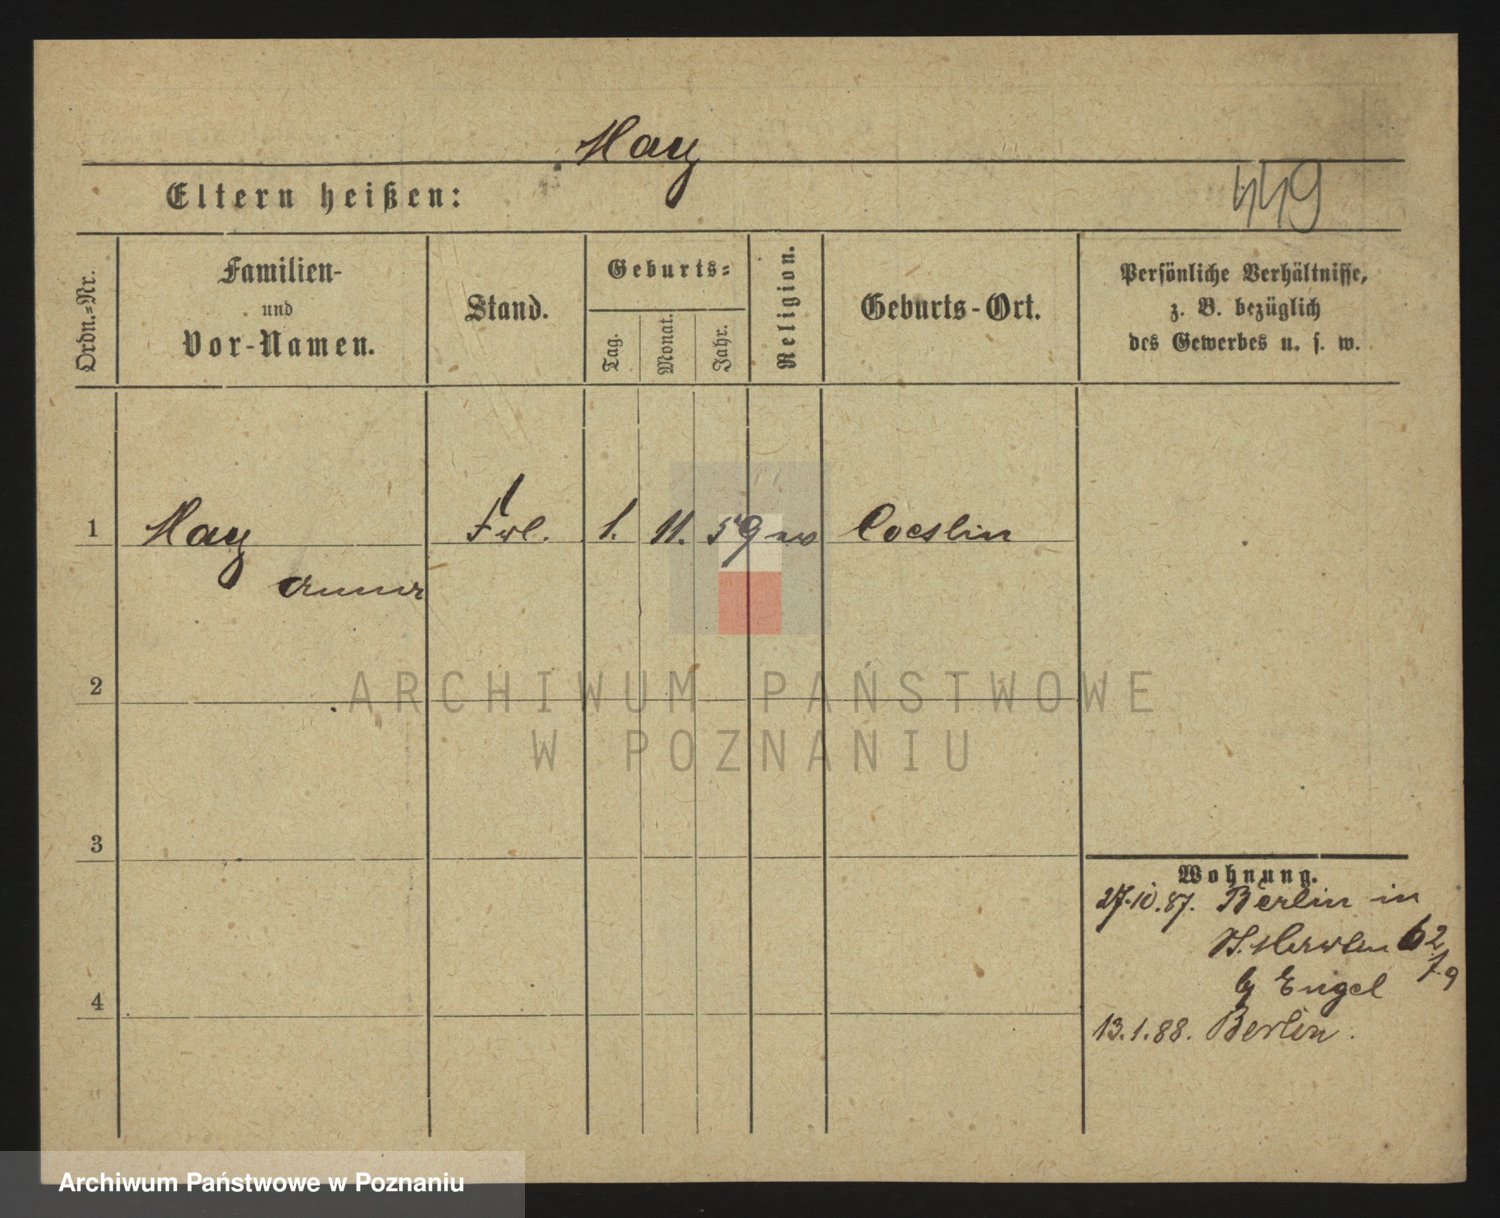 May
449
Eltern heißen:
Ordn.-Nr.
Familien-
und
Vor-Namen.
Stand.
Geburts-
Tag.
Monat.
Jahr.
Religion.
Geburts-Ort.
Persönliche Verhältnisse,
z. B. bezüglich
des Gewerbes u. s. w.
1
May
Anna
Frl.
1.
11.
59
Coeslin
2
ARCHIWUM PAŃSTWOWE
W POZNANIU
3
Wohnung.
27.10.87. Berlin in
St. Martin 62
b/ Engel
4
13.1.88. Berlin.
Archiwum Państwowe w Poznaniu